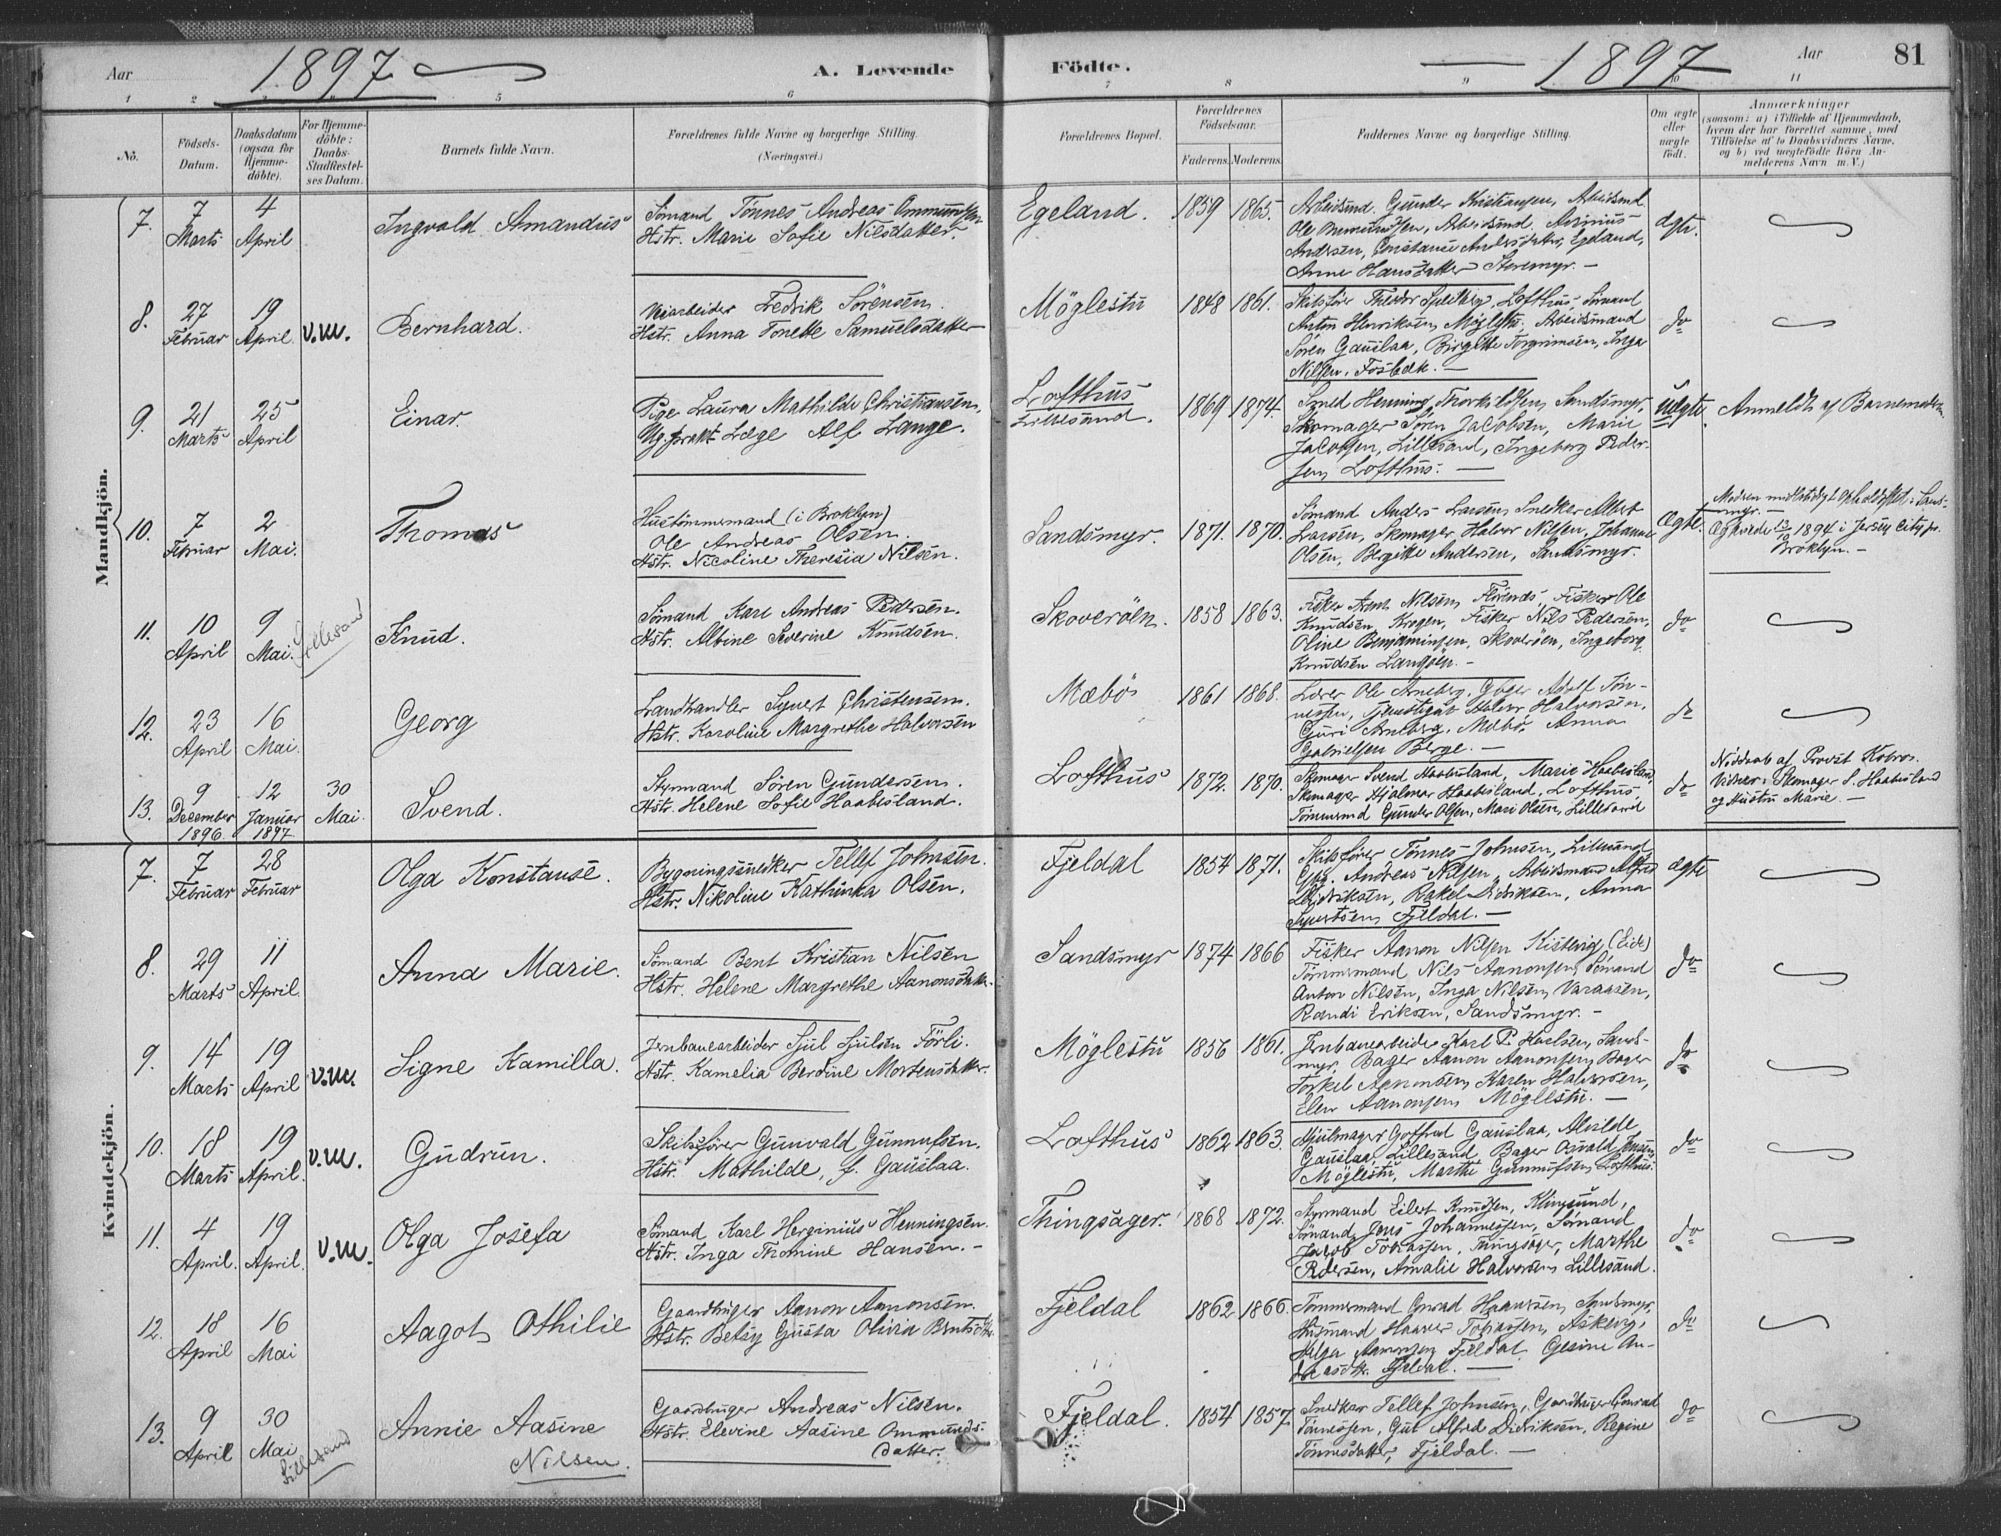 Aar 1897 A. Levende Födte. 1897 Aar 81
1 2 3 5 6 7 8 9 10 11
No.
Födsels-
Datum.
Daabsdatum
(ogsaa for
Hjemme-
döbte).
For Hjemme-
döbte:
Daabs-
Stadfæstel-
ses Datum.
Barnets fulde Navn.
Forældrenes fulde Navne og borgerlige Stilling.
(Næringsvei.)
Forældrenes Bopæl.
Forældrenes
Födselsaar.
Faderens. Moderens.
Faddernes Navne og borgerlige Stilling.
Om ægte
eller
uægte
födt.
Anmærkninger
(saasom: a) i Tilfælde af Hjemmedaab,
hvem der har forrettet samme, med
Tilföielse af to Daabsvidners Navne,
og b) ved uægtefödte Börn An-
melderens Navn m. V.)
Mandkjön.
7. 7 Marts 4 April
Ingvald Amandus
Sömand Tönnes Andreas Ommundsen
Hstr. Marie Sofie Nilsdatter.
Egeland. 1859 1865.
Arbeidsmd. Gunder Kristiansen, Arbeidsmd
Ole Ommundsen, Arbeidsmd.
Andersen, Constanse Andersdatter, Egeland,
Anne Hansdatter Storemyr. -
ægte.
8. 27 Februar 19 April v.m.
Bernhard.
Veiarbeider Fredrik Sörensen.
Hstr. Anna Tonette Samuelsdatter
Möglestu 1848 1861.
Skibsförer Theodor, Lofthus Sömand
Anton Henriksen, Möglestu, Arbeidsmand
Sören Gauslaa, Birgitte Torgrimsen, Inga
Nilsen, Fosbæk. -
do
9. 21 Marts 25 April
Einar.
Pige Laura Mathilde Christiansen,
Ug. prakt. Læge Alf Lange.
Lofthus
Lillesand. 1869 1874.
Henning Thorkildsen, Sandsmyr,
Skomager Sören Jacobsen, Marie
Jacobsen, Lillesand, Ingeborg Peder-
sen, Lofthus. -
uægte
Anmeldt af Barnemoderen.
10. 7 Februar 2 Mai.
Thomas
Hustömmermand (i Broklyn)
Ole Andreas Olsen.
Hstr. Nicoline Theresia Nilsen.
Sandsmyr. 1871. 1870.
Sömand Anders Larsen, Snedker Albert
Larsen, Skomager Halvor Nilsen, Johanne
Olsen, Bergitte Andersen, Sandsmyr.
Ægte.
Modren midlertidigt opholdssted i Sands-
myr. -
Ægteviede 1894 i Jersey City pr.
Broklyn. -
11. 10 April 9 Mai. Lillesand
Knud.
Sömand Karl Andreas Pedersen.
Hstr. Albine Severine Knudsen.
Skoveröen. 1858 1863.
Fisker Arnt Nilsen, Fisker Ole
Knudsen, Krogen, Fisker Nils Pedersen,
Oline Benjaminsen, Skoveröen, Ingeborg
Knudsen Langöen. -
do
12. 23 April 16 Mai.
Georg
Landhandler Syvert Christensen.
Hstr. Karoline Margrethe Halvorsen
Mæbö 1861 1868.
Lærer Ole Arneberg, Gbger Adolf Tön-
nessen, Halvor Halvorsen,
Guri Arneberg, Mæbö, Anna
Gabrielsen Berge. -
do
13. 9 December 1896 12 Januar 1897 30 Mai.
Svend.
Styrmand Sören Gundersen.
Hstr. Helene Sofie Haabesland.
Lofthus 1872. 1870.
Skomager Svend Haabesland, Marie Haabesland,
Skomager Hjalmar Haabesland, Lofthus
Tömmermd Gunder Olsen, Mari Olsen, Lillesand
do
Nöddaab af Provst Kobro.
Vidner: Skomager S. Haabesland
og Hustru Marie. -
Kvindekjön.
7. 7 Februar 28 Februar
Olga Konstanse.
Bygningssnedker Tellef Johnsen.
Hstr. Nikoline Kathinka Olsen.
Fjeldal 1854 1871.
Skibsförer Tönnes Johnsen, Lillesand
Gbr. Andreas Nilsen, Arbeidsmand Alfred
Didriksen, Rakel Didriksen, Anna
Syvertsen, Fjeldal. -
ægte
8. 29 Marts 11 April
Anna Marie.
Sömand Bent Kristian Nilsen
Hstr. Helene Margrethe Aanonsdatter.
Sandsmyr 1874 1866
Fisker Aanon Nilsen Kistevig (Eide)
Tömmermand Nils Aanonsen, Sömand
Anton Nilsen, Inga Nilsen, Varaasen,
Randi Eriksen, Sandsmyr. -
do
9. 14 Marts 19 April v.m.
Signe Kamilla.
Jernbanearbeider Sjul Sjulsen Förli.
Hstr. Kamelia Berdine Mortensdatter.
Möglestu 1856 1861.
Jernbanearbeider Karl P. Karlsen, Sands-
myr, Bager Aanon Aanonsen, Bager
Torkel Aanonsen, Karen Halvorsen,
Elen Aanonsen Möglestu. -
do
10. 18 Marts 19 April. v.m.
Gudrun.
Skibsförer Gunvald Gunnufsen.
Hstr. Mathilde, f. Gauslaa.
Lofthus 1862 1863.
Hjulmager Gotfred Gauslaa, Alvilde
Gauslaa, Lillesand, Bager Osvald Jensen,
Möglestu, Marthe Gunnufsen, Lofthus.
do
11. 4 April. 19 April. v.m.
Olga Josefa
Sömand Karl Herginius Henningsen.
Hstr. Inga Thomine Hansen. -
Thingsager. 1868 1872.
Styrmand Eilert Knudsen, Klingsund,
Sömand Jens Johannessen, Sömand
Jacob Tobiassen, Tingsager, Marthe
Pedersen, Amalie Halvorsen, Lillesand.
do
12. 18 April 16 Mai
Aagot Othilie
Gaardbruger Aanon Aanonsen.
Hstr. Betsy Gusta Olivia Berntsdtr.
Fjeldal 1862 1866.
Tömmermand Conrad Haaversen, Sandsmyr,
Husmand Haaver Tobiassen, Askevig,
Helga Aanonsen Fjeldal, Gesine An-
dreasdtr. Fjeldal. -
do
13. 9 April 30 Mai Lillesand
Annie Aasine
Nilsen.
Gaardbruger Andreas Nilsen.
Hstr. Elevine Aasine Ommunds-
datter.
Fjeldal. 1854 1857.
Snedker Tellef Johnsen, Gaardbruger Conrad
Tönnessen, Gut Alfred Didriksen, Regine
Tönnesdatter, Fjeldal. -
do